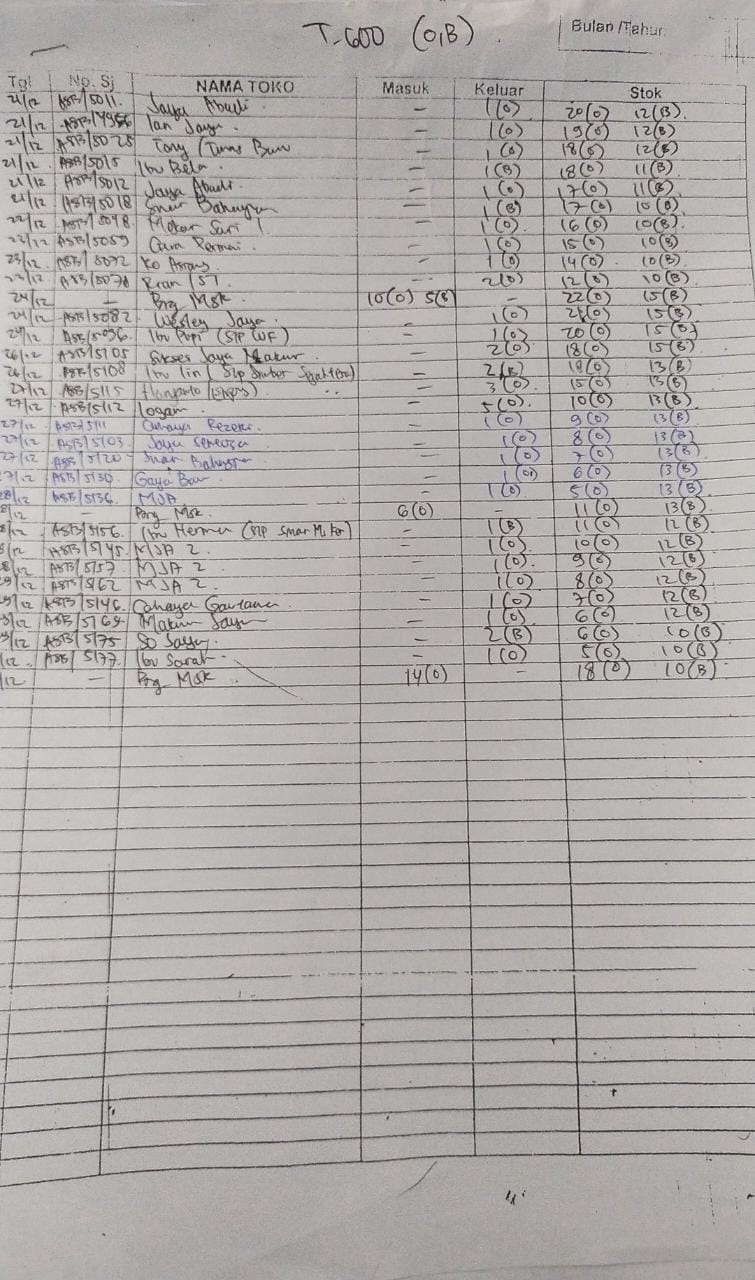 T-600 (O,B)
Bulan /Tahun
Tgl No. Sj NAMA TOKO Masuk Keluar Stok
21/12 ASB/5011. Jaya Abadi. - 1(O) 20(O) 12(B).
21/12 ASB/4956 Ian Jaya. - 1(O) 19(O) 12(B)
21/12 ASB/5025 Tony (Tunas Baru - 1(O) 18(O) 12(B)
21/12. ASB/5015 Ibu Bela. - 1(B) 18(O) 11(B)
21/12 ASB/5012 Jaya Abadi. - 1(O) 17(O) 11(B).
21/12 ASB/5018 Sinar - 1(B) 17(O) 10(B).
22/12 ASB/5048. Mekar Sari 1. - 1(O) 16(O) 10(B).
ASB/5059 Permai. - 1(O) 15(O) 10(B)
23/12. ASB/5072 Ko - 1(O) 14(O). 10(B).
23/12 ASB/5070 Rian 151 - 2(O) 12(O) 10(B)
24/12 - Brg Msk. 10(O) 5(B) - 22(O) 15(B)
24/12 ASB/5082. Wesley Jaya. - 1(O) 21(O) 15(B)
24/12 ASB/5096. Ibu Pupi (STP WF) = 1(O) 20(O) 15(B)
26/12 ASB/5105 Sukses Jaya Makmur - 2(O) 18(O) 15(B)
26/12 ASB/5108 Ibu Iin (STP Sumber - 2(B) 18(O) 13(B)
27/12 ASB/5115 - 3(O) 15(O) 13(B)
27/12. ASB/5112 Logam. - 5(O). 10(O) 13(B)
27/12 ASB/5111 Cahaya Rezeki. - 1(O) 9(O) 13(B)
27/12 ASB/5103 Jaya Sentosa - 1(O) 8(O) 13(B)
27/12 ASB/5120 Sinar - 1(O) 7(O) 13(B)
7/12 ASB/5130. Gaya Baru - 1(O) 6(O) 13(B)
28/12 ASB/5136. MJA - 1(O). 5(O) 13(B)
8/12 - Brg Msk. 6(O) - 11(O) 13(B)
8/12 ASTB/5156. Ibu Herman (STP Sinar M. Kar) - 1(B) 11(O) 12(B)
8/12 ASTB/5145. MJA 2. - 1(O) 10(O) 12(B)
8/12 ASTB/5157 MJA 2 - 1(O). 9(O) 12(B)
9/12 ASTB/5162 MJA 2. - 1(O) 8(O) 12(B)
9/12 ASTB/5146. Cahaya - 1(O) 7(O) 12(B)
9/12 ASTB/5169 Makmur Jaya - 1(O) 6(O) 12(B)
9/12 ASTB/5175 So Jaya. - 2(B) 6(O) 10(B)
/12. ASB/5177. Ibu Sarah. - 1(O) 5(O) 10(B)
/12 - Brg Msk. 14(O) - 18(O) 10(B)